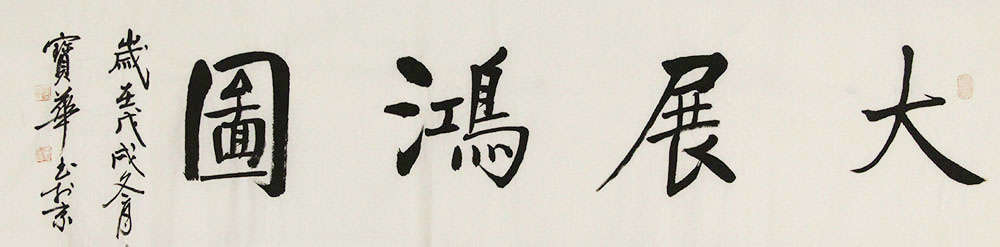 大展鴻圖
歲在戊戌冬月
寶華書於京